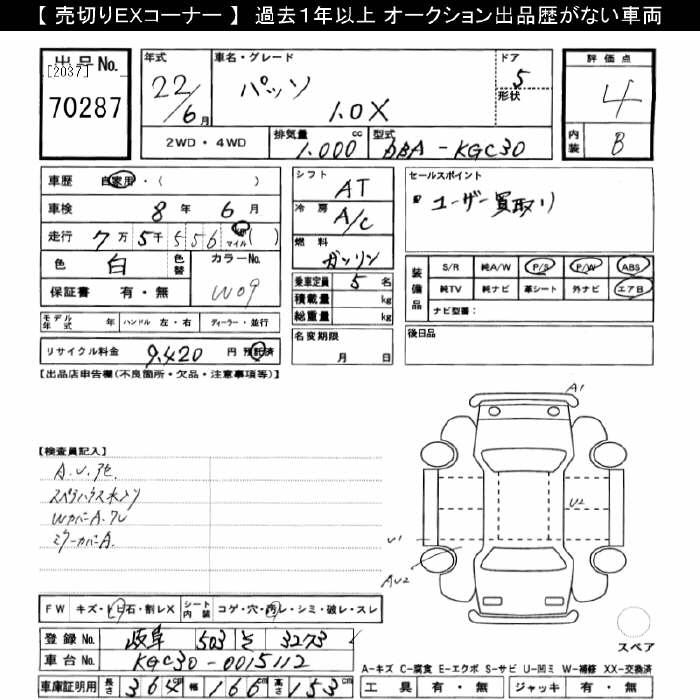 【 売切りEXコーナー 】 過去1年以上 オークション出品歴がない車両
出品No.
[2037]
70287
年式
22/6月
車名・グレード
パッソ
1.0X
ドア
5
形状
2WD・4WD
排気量
1.000 cc
型式
DBA-KGC30
評価点
4
内装
B
車歴 自家用・( )
車検 8年 6月
走行 7万 5千 556 km マイル ( )
色 白
色替
カラーNo.
W09
保証書 有・無
モデル年式 年 ハンドル 左・右 ディーラー・並行
リサイクル料金 9,420 円 預託済
シフト
AT
冷房
A/C
燃料
ガソリン
乗車定員 5 名
積載量 kg
総重量 kg
名変期限
月 日
セールスポイント
ユーザー買取り
装備品
S/R 純A/W P/S P/W ABS
純TV 純ナビ 革シート 外ナビ エアB
ナビ型番：
後日品
【出品店申告欄(不良箇所・欠品・注意事項等)】
【検査員記入】
スペアハウス水入り
WカバーA.ワレ
ミラーカバーA.
A1
U2
U1
AU2
スペア
FW キズ・ヒビ石・割レX
シート内装 コゲ・穴・汚レ・シミ・破レ・スレ
登録No. 岐阜 503 そ 3273
車台No. KGC30-0015112
車庫証明用 長さ 364cm 幅 166cm 高さ 153cm
A-キズ C-腐食 E-エクボ S-サビ U-凹ミ W-補修 XX-交換済
工具 有・無 ジャッキ 有・無